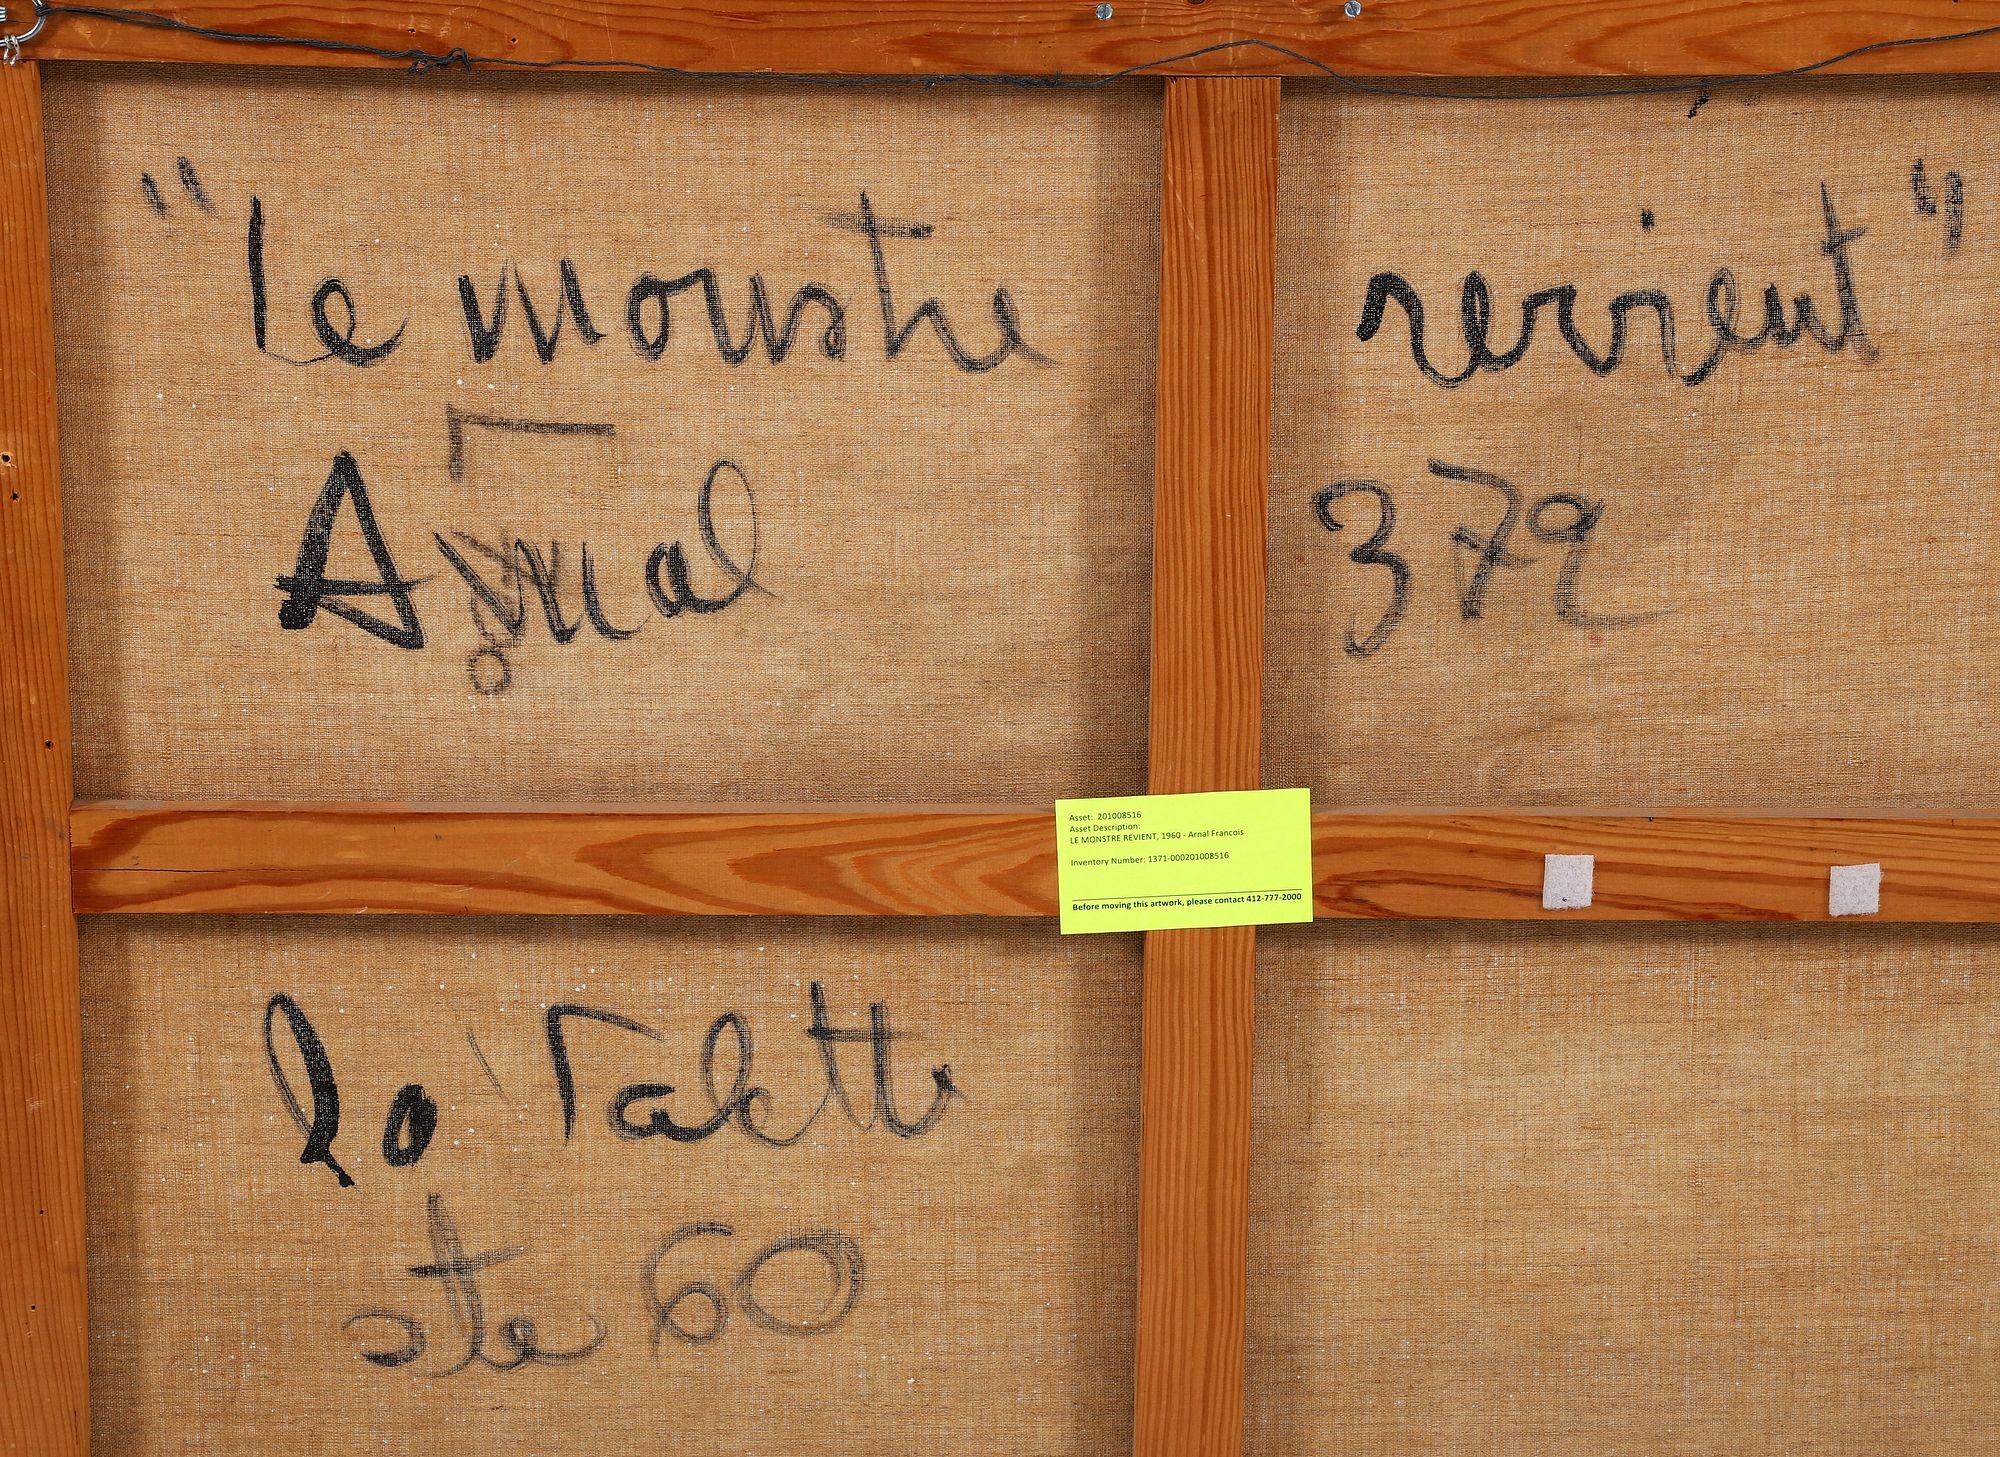 "le monstre revient"
Arnal 379
la Valette
ete 60
Asset: 201008516
Asset Description:
LE MONSTRE REVIENT, 1960 - Arnal Francois
Inventory Number: 1371-000201008516
Before moving this artwork, please contact 412-777-2000